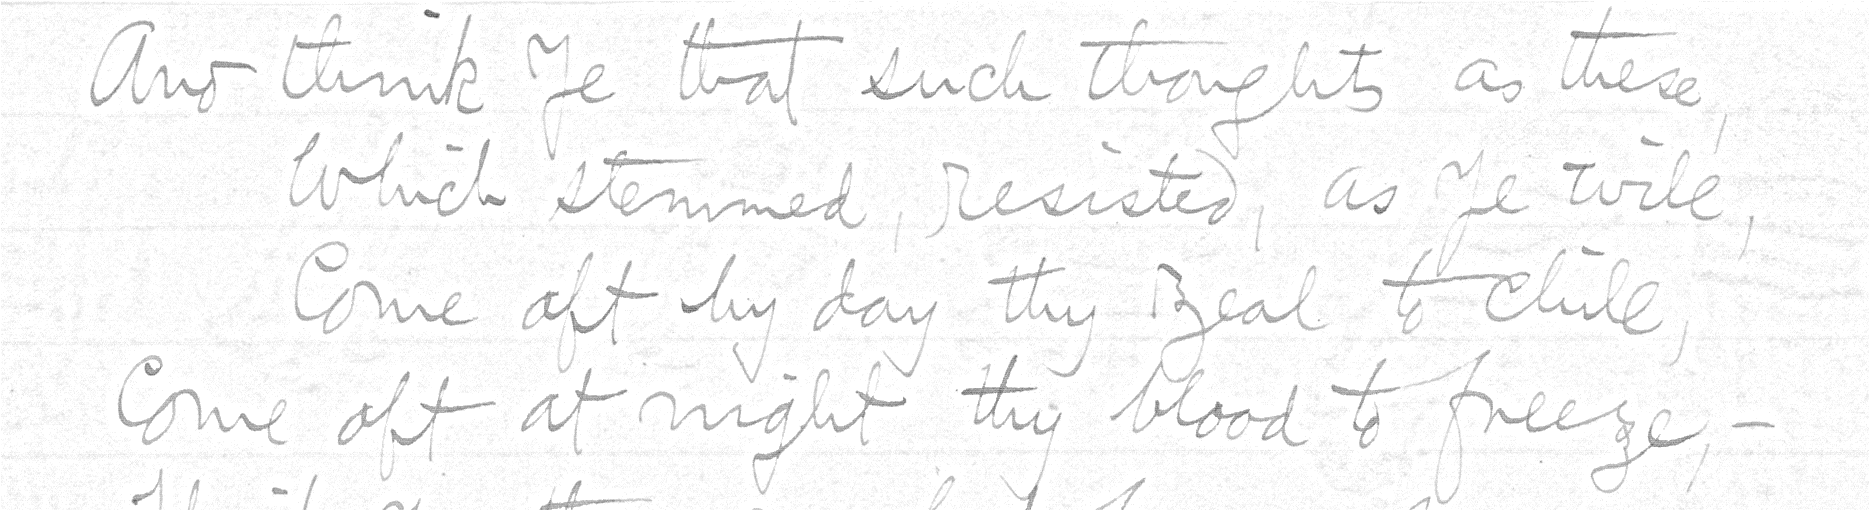 And think Ye that such thoughts as these,
Which stemmed, resisted, as Ye will,
Come oft by day thy Zeal to chill,
Come oft at night thy blood to freeze,—